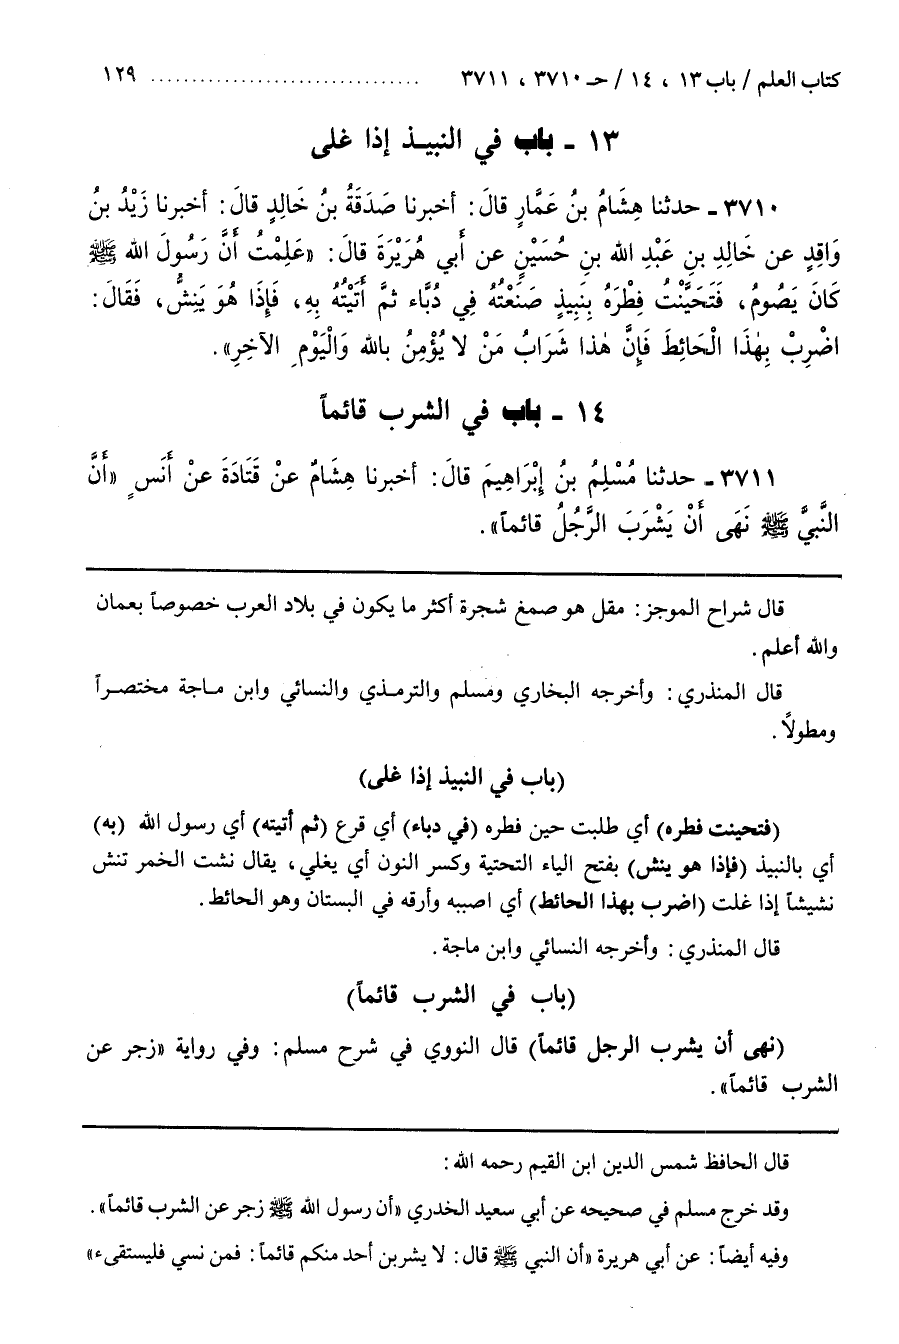 كتاب العلم / باب ١٣ ، ١٤ / حـ ٣٧١٠ ، ٣٧١١ ................................ ١٢٩
١٣ ـ باب في النبيـذ إذا غلى
٣٧١٠ ـ حدثنا هِشَامُ بنُ عَمَّارٍ قالَ: أخبرنا صَدَقَةُ بنُ خَالِدٍ قالَ: أخبرنا زَيْدُ بنُ
وَاقِدٍ عن خَالِدِ بنِ عَبْدِ الله بنِ حُسَيْنٍ عن أبي هُرَيْرَةَ قالَ: «عَلِمْتُ أنَّ رَسُولَ الله ﷺ
كَانَ يَصُومُ، فَتَحَيَّنْتُ فِطْرَهُ بِنَبِيذٍ صَنَعْتُهُ فِي دُبَّاء ثمَّ أَتَيْتُهُ بِهِ، فَإِذَا هُوَ يَنِشُّ، فَقَالَ:
اضْرِبْ بِهٰذَا الْحَائِطَ فَإنَّ هٰذا شَرَابُ مَنْ لا يُؤْمِنُ بالله وَالْيَوْمِ الآخِرِ».
١٤ ـ باب في الشرب قائماً
٣٧١١ ـ حدثنا مُسْلِمُ بنُ إبْرَاهِيمَ قالَ: أخبرنا هِشَامٌ عنْ قَتَادَةَ عنْ أَنَسٍ «أَنَّ
النَّبيَّ ﷺ نَهَى أَنْ يَشْرَبَ الرَّجُلُ قائماً».
قال شراح الموجز: مقل هو صمغ شجرة أكثر ما يكون في بلاد العرب خصوصاً بعمان
والله أعلم.
قال المنذري: وأخرجه البخاري ومسلم والترمذي والنسائي وابن ماجة مختصراً
ومطولاً.
(باب في النبيذ إذا غلى)
(فتحينت فطره) أي طلبت حين فطره (في دباء) أي قرع (ثم أتيته) أي رسول الله (به)
أي بالنبيذ (فإذا هو ينش) بفتح الياء التحتية وكسر النون أي يغلي، يقال نشت الخمر تنش
نشيشاً إذا غلت (اضرب بهذا الحائط) أي اصببه وأرقه في البستان وهو الحائط.
قال المنذري: وأخرجه النسائي وابن ماجة.
(باب في الشرب قائماً)
(نهى أن يشرب الرجل قائماً) قال النووي في شرح مسلم: وفي رواية «زجر عن
الشرب قائماً».
قال الحافظ شمس الدين ابن القيم رحمه الله:
وقد خرج مسلم في صحيحه عن أبي سعيد الخدري «أن رسول الله ﷺ زجر عن الشرب قائماً».
وفيه أيضاً: عن أبي هريرة «أن النبي ﷺ قال: لا يشربن أحد منكم قائماً: فمن نسي فليستقىء»